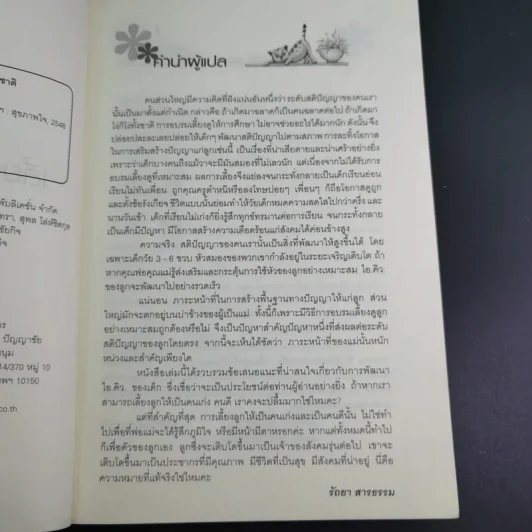 ชาติ
สุขภาพใจ, 2548
พับลิเคชั่น จำกัด
ปัญญาชัย
14/370 หมู่ 10
10150
co.th
คำนำผู้แปล
คนส่วนใหญ่มีความคิดที่ฝังแน่นอันหนึ่งว่า ระดับสติปัญญาของคนเรา
นั้นเป็นมาตั้งแต่กำเนิด กล่าวคือ ถ้าเกิดมาฉลาดก็เป็นคนฉลาดต่อไป ถ้าเกิดมา
โง่ก็โง่ทั้งชาติ การอบรมเลี้ยงดูให้การศึกษา ไม่อาจช่วยอะไรได้มากนัก ดังนั้น จึง
ปล่อยปละละเลยปล่อยให้เด็กๆ พัฒนาสติปัญญาไปตามสภาพ การละทิ้งโอกาส
ในการเสริมสร้างปัญญาแก่ลูกเช่นนี้ เป็นเรื่องที่น่าเสียดายและน่าเศร้าอย่างยิ่ง
เพราะว่าเด็กบางคนถึงแม้ว่าจะมีมันสมองที่ไม่เลวนัก แต่เนื่องจากไม่ได้รับการ
อบรมเลี้ยงดูที่เหมาะสม ผลการเลี้ยงจึงแปลงจนกระทั่งกลายเป็นเด็กเรียนอ่อน
เรียนไม่ทันเพื่อน ถูกคุณครูตำหนิหรือลงโทษบ่อยๆ เพื่อนๆ ก็ถือโอกาสดูถูก
และตั้งข้อรังเกียจ ชีวิตแบบนั้นย่อมทำให้วัยเด็กหมดความสดใสไปกว่าครึ่ง และ
นานวันเข้า เด็กที่เรียนไม่เก่งก็ยิ่งรู้สึกทุกข์ทรมานต่อการเรียน จนกระทั่งกลาย
เป็นเด็กมีปัญหา มีโอกาสสร้างความเดือดร้อนแก่สังคมได้ค่อนข้างสูง
ความจริง สติปัญญาของคนเรานั้นเป็นสิ่งที่พัฒนาให้สูงขึ้นได้ โดย
เฉพาะเด็กวัย 3 - 6 ขวบ หัวสมองของพวกเขากำลังอยู่ในระยะเจริญเติบโต ถ้า
หากคุณพ่อคุณแม่รู้ส่งเสริมและกระตุ้นการใช้หัวของลูกอย่างเหมาะสม ไอ.คิว.
ของลูกจะพัฒนาไปอย่างรวดเร็ว
แน่นอน ภาระหน้าที่ในการสร้างพื้นฐานทางปัญญาให้แก่ลูก ส่วน
ใหญ่มักจะตกอยู่บนบ่าข้างของผู้เป็นแม่ ทั้งนี้ก็เพราะมีวิธีการอบรมเลี้ยงดูลูก
อย่างเหมาะสมถูกต้องหรือไม่ จึงเป็นปัญหาสำคัญปัญหาหนึ่งที่ส่งผลต่อระดับ
สติปัญญาของลูกโดยตรง จากนี้จะเห็นได้ชัดว่า ภาระหน้าที่ของแม่นั้นหนัก
หน่วงและสำคัญเพียงใด
หนังสือเล่มนี้ได้รวบรวมข้อเสนอแนะที่น่าสนใจเกี่ยวกับการพัฒนา
ไอ.คิว. ของเด็ก ซึ่งเชื่อว่าจะเป็นประโยชน์ต่อผู้อ่านอย่างยิ่ง ถ้าหากเรา
สามารถเลี้ยงลูกให้เป็นคนเก่ง คนดี เราคงจะปลื้มมากใช่ไหมคะ?
แต่ที่สำคัญที่สุด การเลี้ยงลูกให้เป็นคนเก่งและเป็นคนดีนั้น ไม่ใช่ทำ
ไปเพื่อที่พ่อแม่จะได้รู้สึกภูมิใจ หรือมีหน้ามีตาหรอกค่ะ หากแต่ทั้งหมดนี้ทำไป
ก็เพื่อตัวของลูกเอง ลูกซึ่งจะเติบโตขึ้นมาเป็นเจ้าของสังคมรุ่นต่อไป เขาจะ
เติบโตขึ้นมาเป็นประชากรที่มีคุณภาพ มีชีวิตที่เป็นสุข มีสังคมที่น่าอยู่ นี่คือ
ความหมายที่แท้จริงใช่ไหมคะ
รัถยา สารธรรม